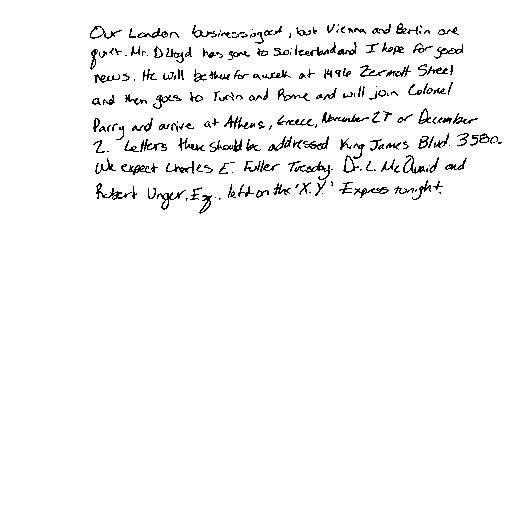 Our London business is good, but Vienna and Berlin are
quiet. Mr. D. Lloyd has gone to Switzerland and I hope for good
news. He will be there for a week at 1496 Zermott Street
and then goes to Turin and Rome and will join Colonel
Parry and arrive at Athens, Greece, November 27 or December
2. Letters there should be addressed King James Blvd. 3580.
We expect Charles E. Fuller Tuesday. Dr. L. McQuaid and
Robert Unger, Esq., left on the 'X.Y.' Express tonight.